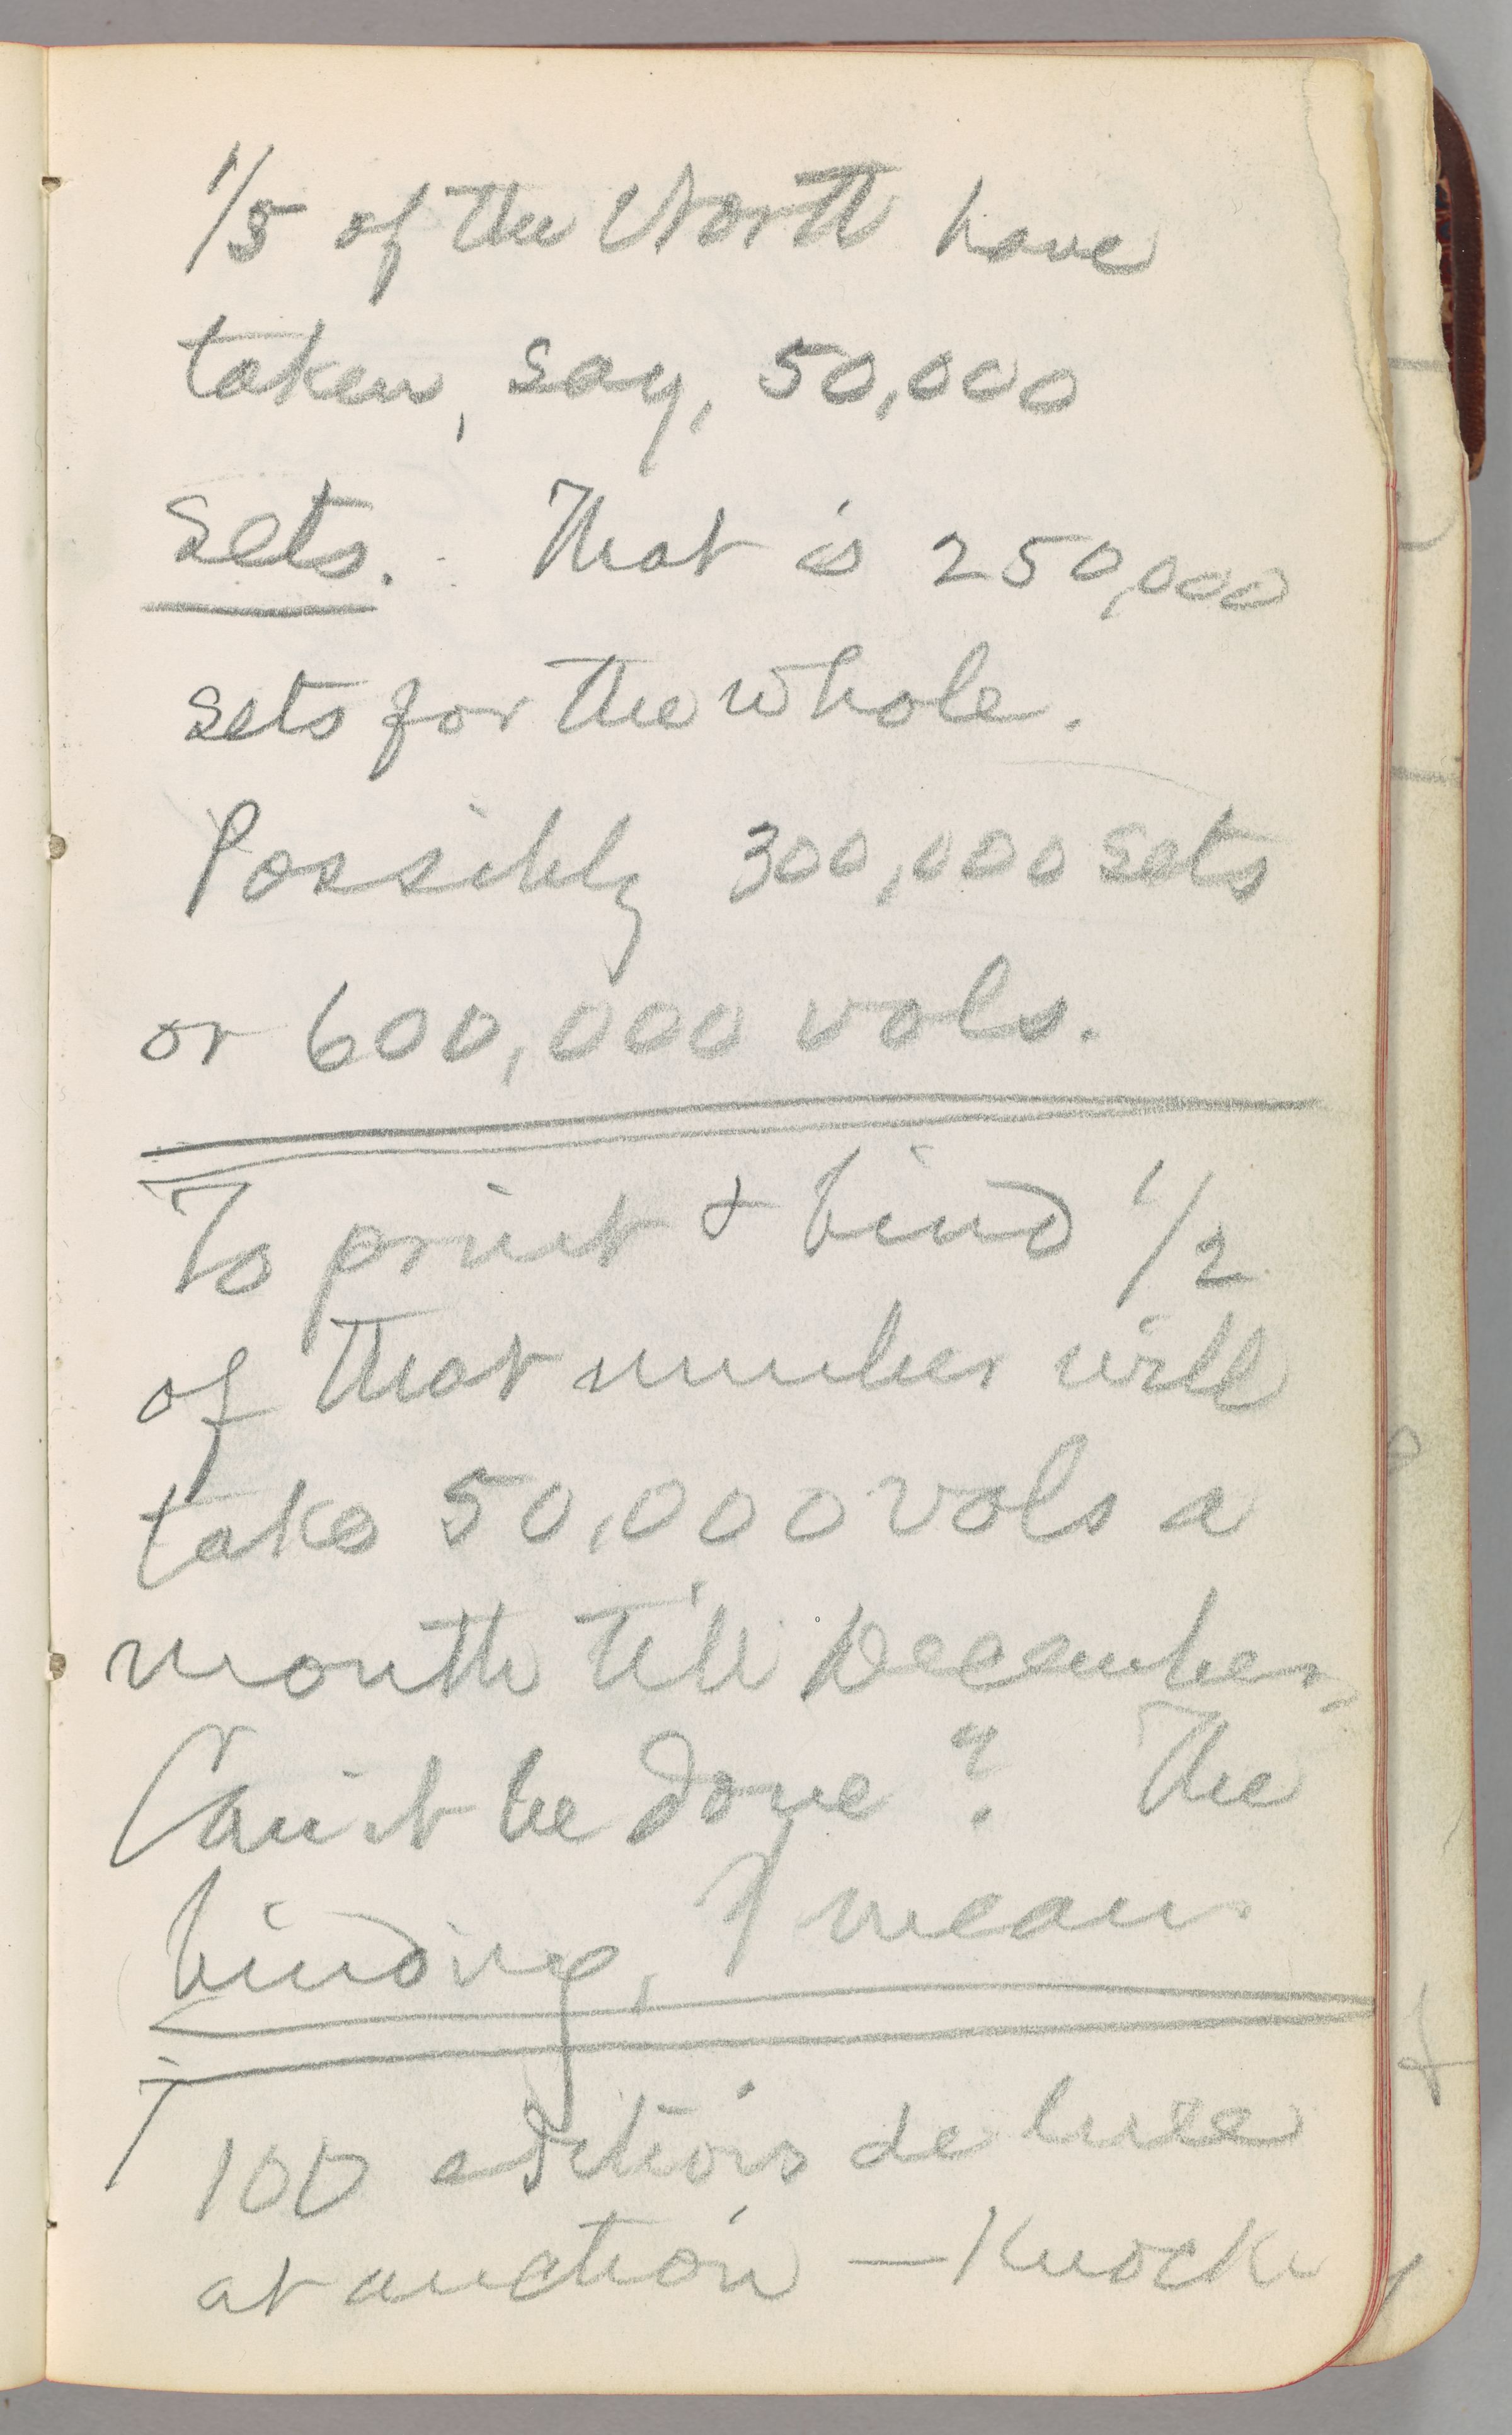 1/5 of the North have
taken, say, 50,000
sets. That is 250,000
sets for the whole.
Possibly 300,000 sets
or 600,000 vols.
To print & bind 1/2
of that number will
take 50,000 vols a
month till December.
Can it be done? The
binding, I mean.
100 editions de luxe
at auction — Knock